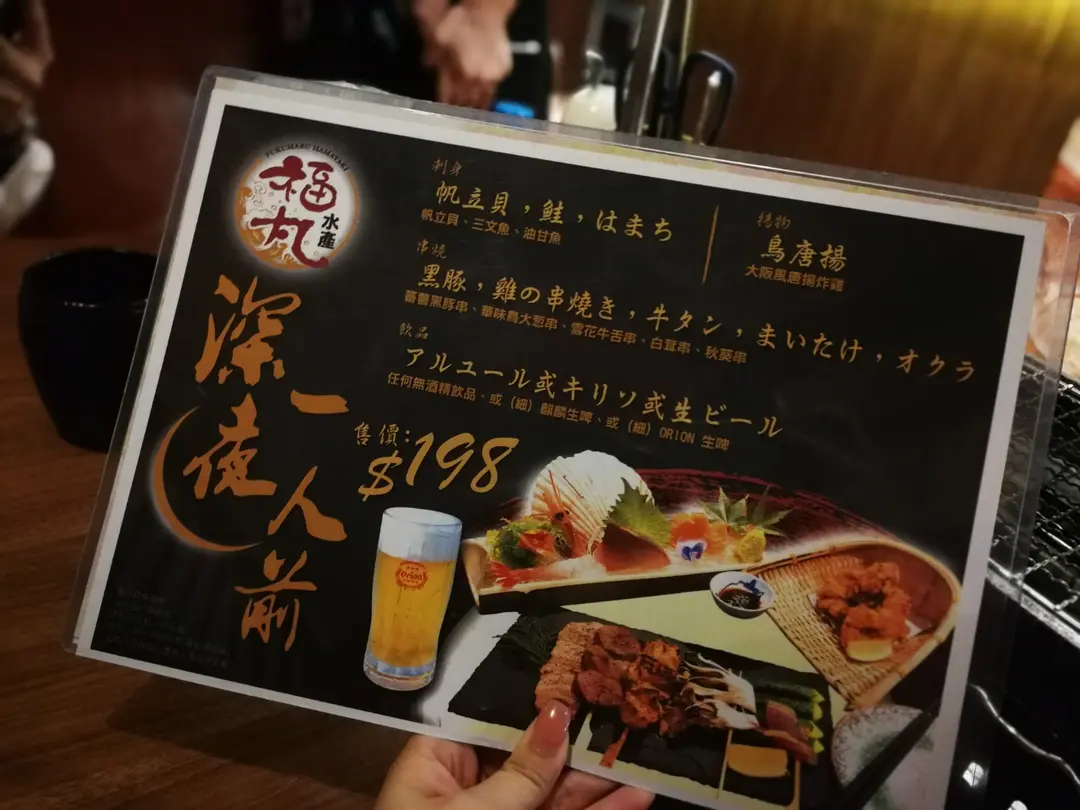 FUKUMARU HAMAYAKI
福丸
水產
深夜
一人前
刺身
帆立貝,鮭,はまち
帆立貝、三文魚、油甘魚
揚物
鳥唐揚
大阪風唐揚炸雞
串燒
黑豚,雞の串燒き,牛タン,まいたけ,オクラ
蕃薯黑豚串、華味鳥大葱串、雪花牛舌串、白茸串、秋葵串
飲品
アルユール或キリソ或生ビール
任何無酒精飲品、或(細)麒麟生啤、或(細)ORION 生啤
售價:
$198
Orion